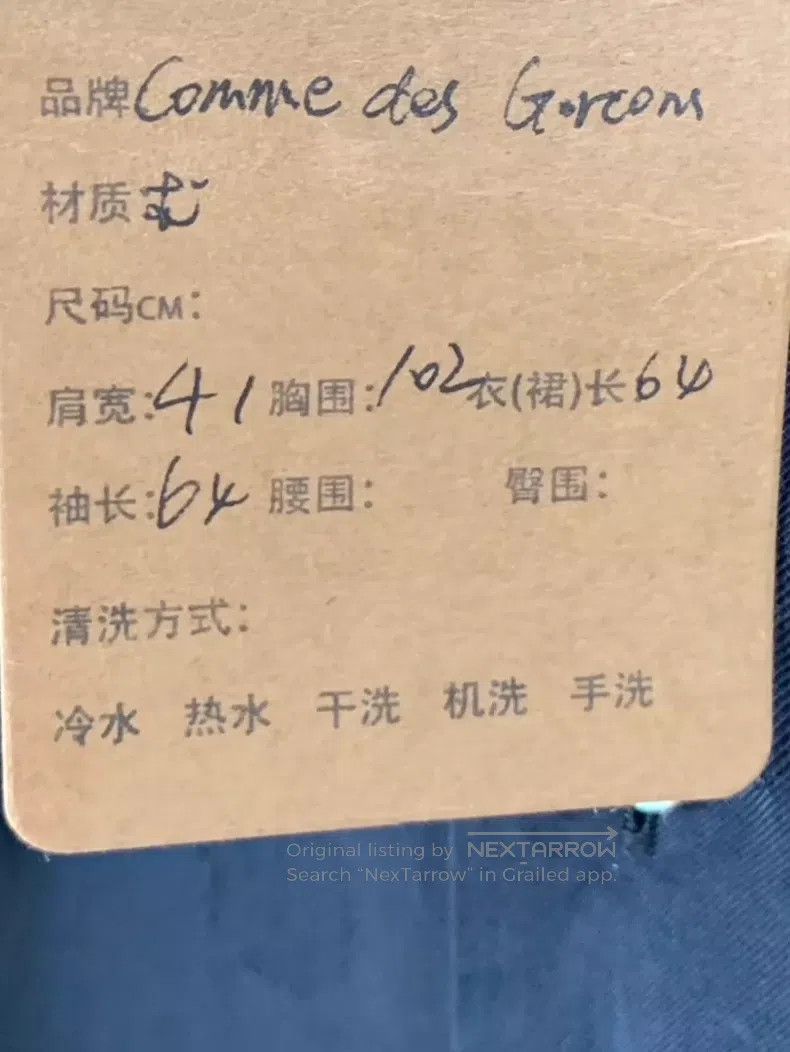 品牌 Comme des Garcons
材质
尺码CM：
肩宽：41 胸围：102 衣(裙)长 64
袖长：64 腰围： 臀围：
清洗方式：
冷水 热水 干洗 机洗 手洗
Original listing by NEXTARROW
Search “NexTarrow” in Grailed app.